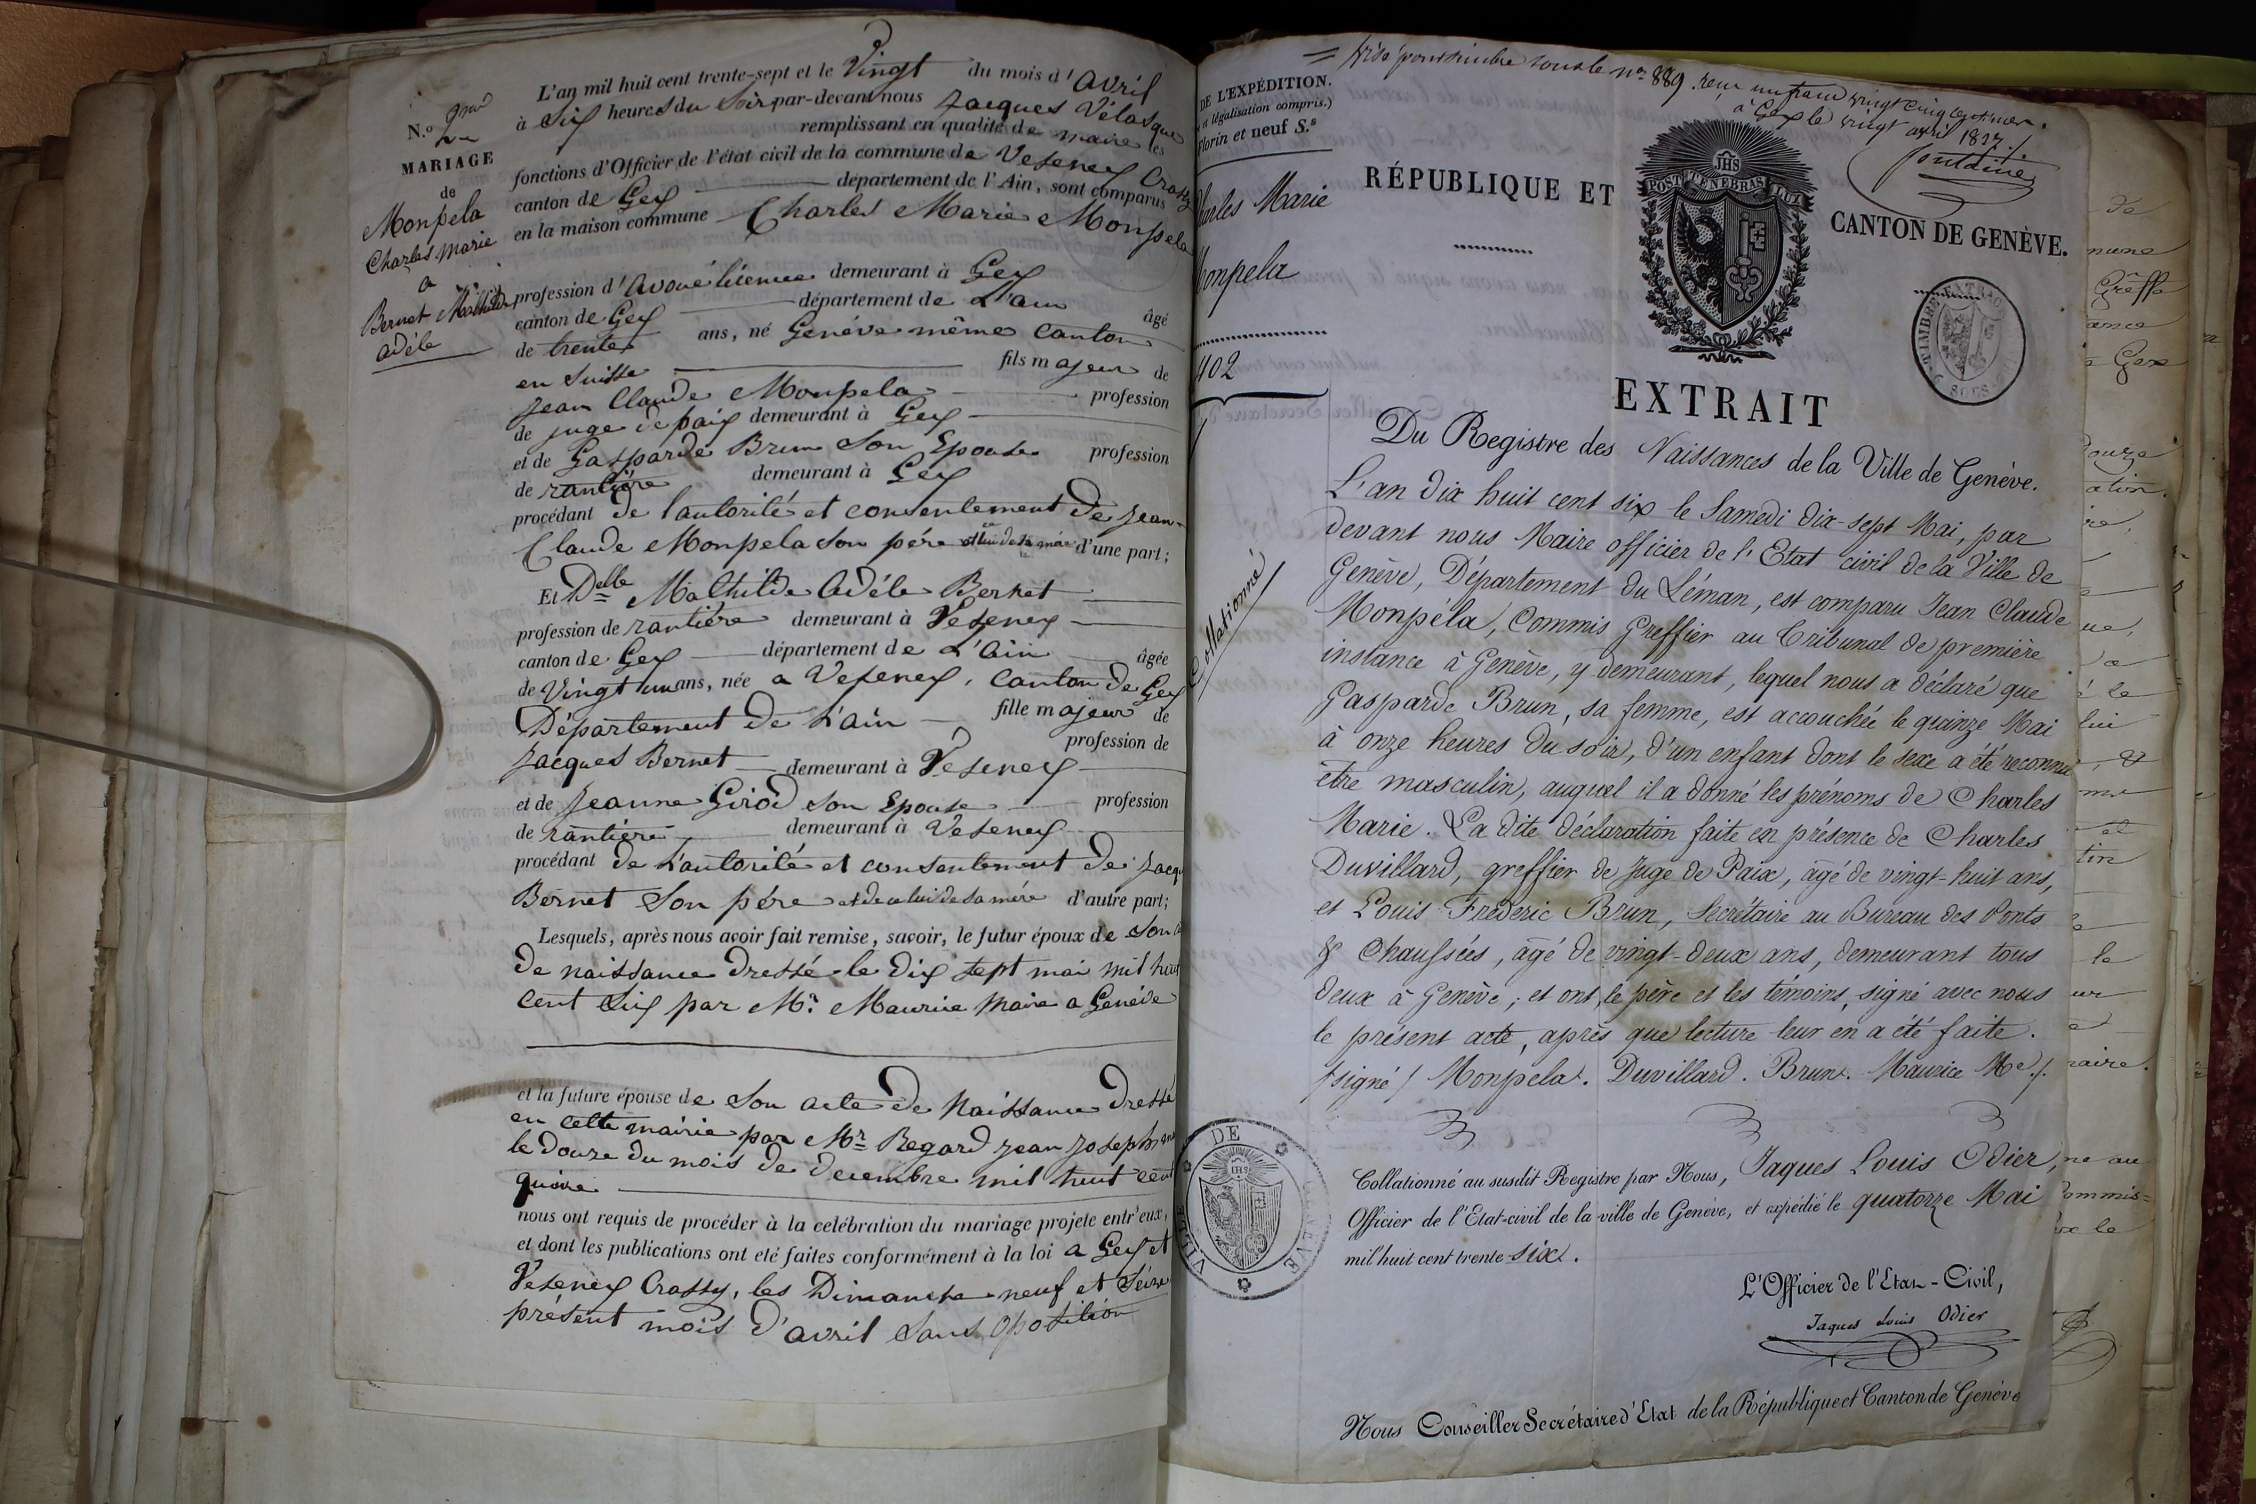 N.o 2me
MARIAGE
de
Monpela
Charles Marie
a
Bernet Mathilde
adéle
L'an mil huit cent trente-sept et le Vingt du mois d'avril
à Six heures du Soir par-devant nous Jacques Vélasque
remplissant en qualité de maire les
fonctions d'Officier de l'état civil de la commune de Veseney Crassy
canton de Gex département de l'Ain, sont comparus
en la maison commune Charles Marie Monpela
profession d'avoué licencié demeurant à Gex
canton de Gex département de L'ain âgé
de trente ans, né Genéve même canton
en Suisse fils majeur de
Jean Claude Monpela profession
de juge de paix demeurant à Gex
et de Gasparde Brun Son Epouse profession
de rantière demeurant à Gex
procédant de l'autorité et consentement de Jean-
Claude Monpela son pére et celui de sa mére d'une part;
Et Delle Mathilde Adéle Bernet
profession de rantière demeurant à Veseney
canton de Gex département de L'Ain âgée
de Vingt un ans, née a Veseney, canton de Gex
Département de L'ain fille majeur de
Jacques Bernet profession de
demeurant à Veseney
et de Jeanne Girod son Epouse profession
de rantière demeurant à Veseney
procédant de L'autorité et consentement de Jacq
Bernet Son pére et de celui de Sa mére d'autre part;
Lesquels, après nous avoir fait remise, savoir, le futur époux de Son a
de naissance dressé le dix sept mai mil huit
cent Six par Mr. Maurice Maire a Genéve
et la future épouse de Son acte de Naissance dressé
en cette mairie par Mr Regard Jean Joseph
le douze du mois de decembre mil huit cent
quinze
nous ont requis de procéder à la celébration du mariage projeté entr'eux,
et dont les publications ont été faites conformément à la loi a Gex et
Veseney Crassy, les Dimanche neuf et Seize
présent mois d'avril Sans Oposition
Visé pour timbre sous le no. 889. Reçu un franc vingt cinq centimes.
à Gex le vingt avril 1837./.
DE L'EXPÉDITION.
et légalisation compris.)
florin et neuf S.s
Charles Marie
Monpela
402
Collationné
RÉPUBLIQUE ET
JHS
POST TENEBRAS LUX
CANTON DE GENÈVE.
TIMBRE EXTRAO
EXTRAIT
Du Registre des Naissances de la Ville de Genève.
L'an dix huit cent six le Samedi dix-sept Mai, par
devant nous Maire officier de l'Etat civil de la Ville de
Genève, Département du Léman, est comparu Jean Claude
Monpéla, Commis Greffier au Tribunal de première
instance à Genève, y demeurant, lequel nous a déclaré que
Gasparde Brun, sa femme, est accouchée le quinze Mai
à onze heures du soir, d'un enfant dont le sexe a été reconnu
être masculin, auquel il a donné les prénoms de Charles
Marie. La dite déclaration faite en présence de Charles
Duvillard, greffier de Juge de Paix, âgé de vingt-huit ans,
et Louis Frederic Brun, Secrétaire au Bureau des Ponts
& Chaussées, âgé de vingt-deux ans, demeurant tous
deux à Genève; et ont, le père et les témoins, signé avec nous
le présent acte, après que lecture leur en a été faite.
/signé/ Monpela. Duvillard. Brun. Maurice Me./.
VILLE DE GENEVE
JHS
Collationné au susdit Registre par Nous, Jaques Louis Odier,
Officier de l'Etat-civil de la ville de Genève, et expédié le quatorze Mai
mil huit cent trente-six.
L'Officier de l'Etat-Civil,
Jaques Louis Odier
Nous Conseiller Secrétaire d'Etat de la République et Canton de Genève
de
Greffe
Gex
le
lui
&
et
le